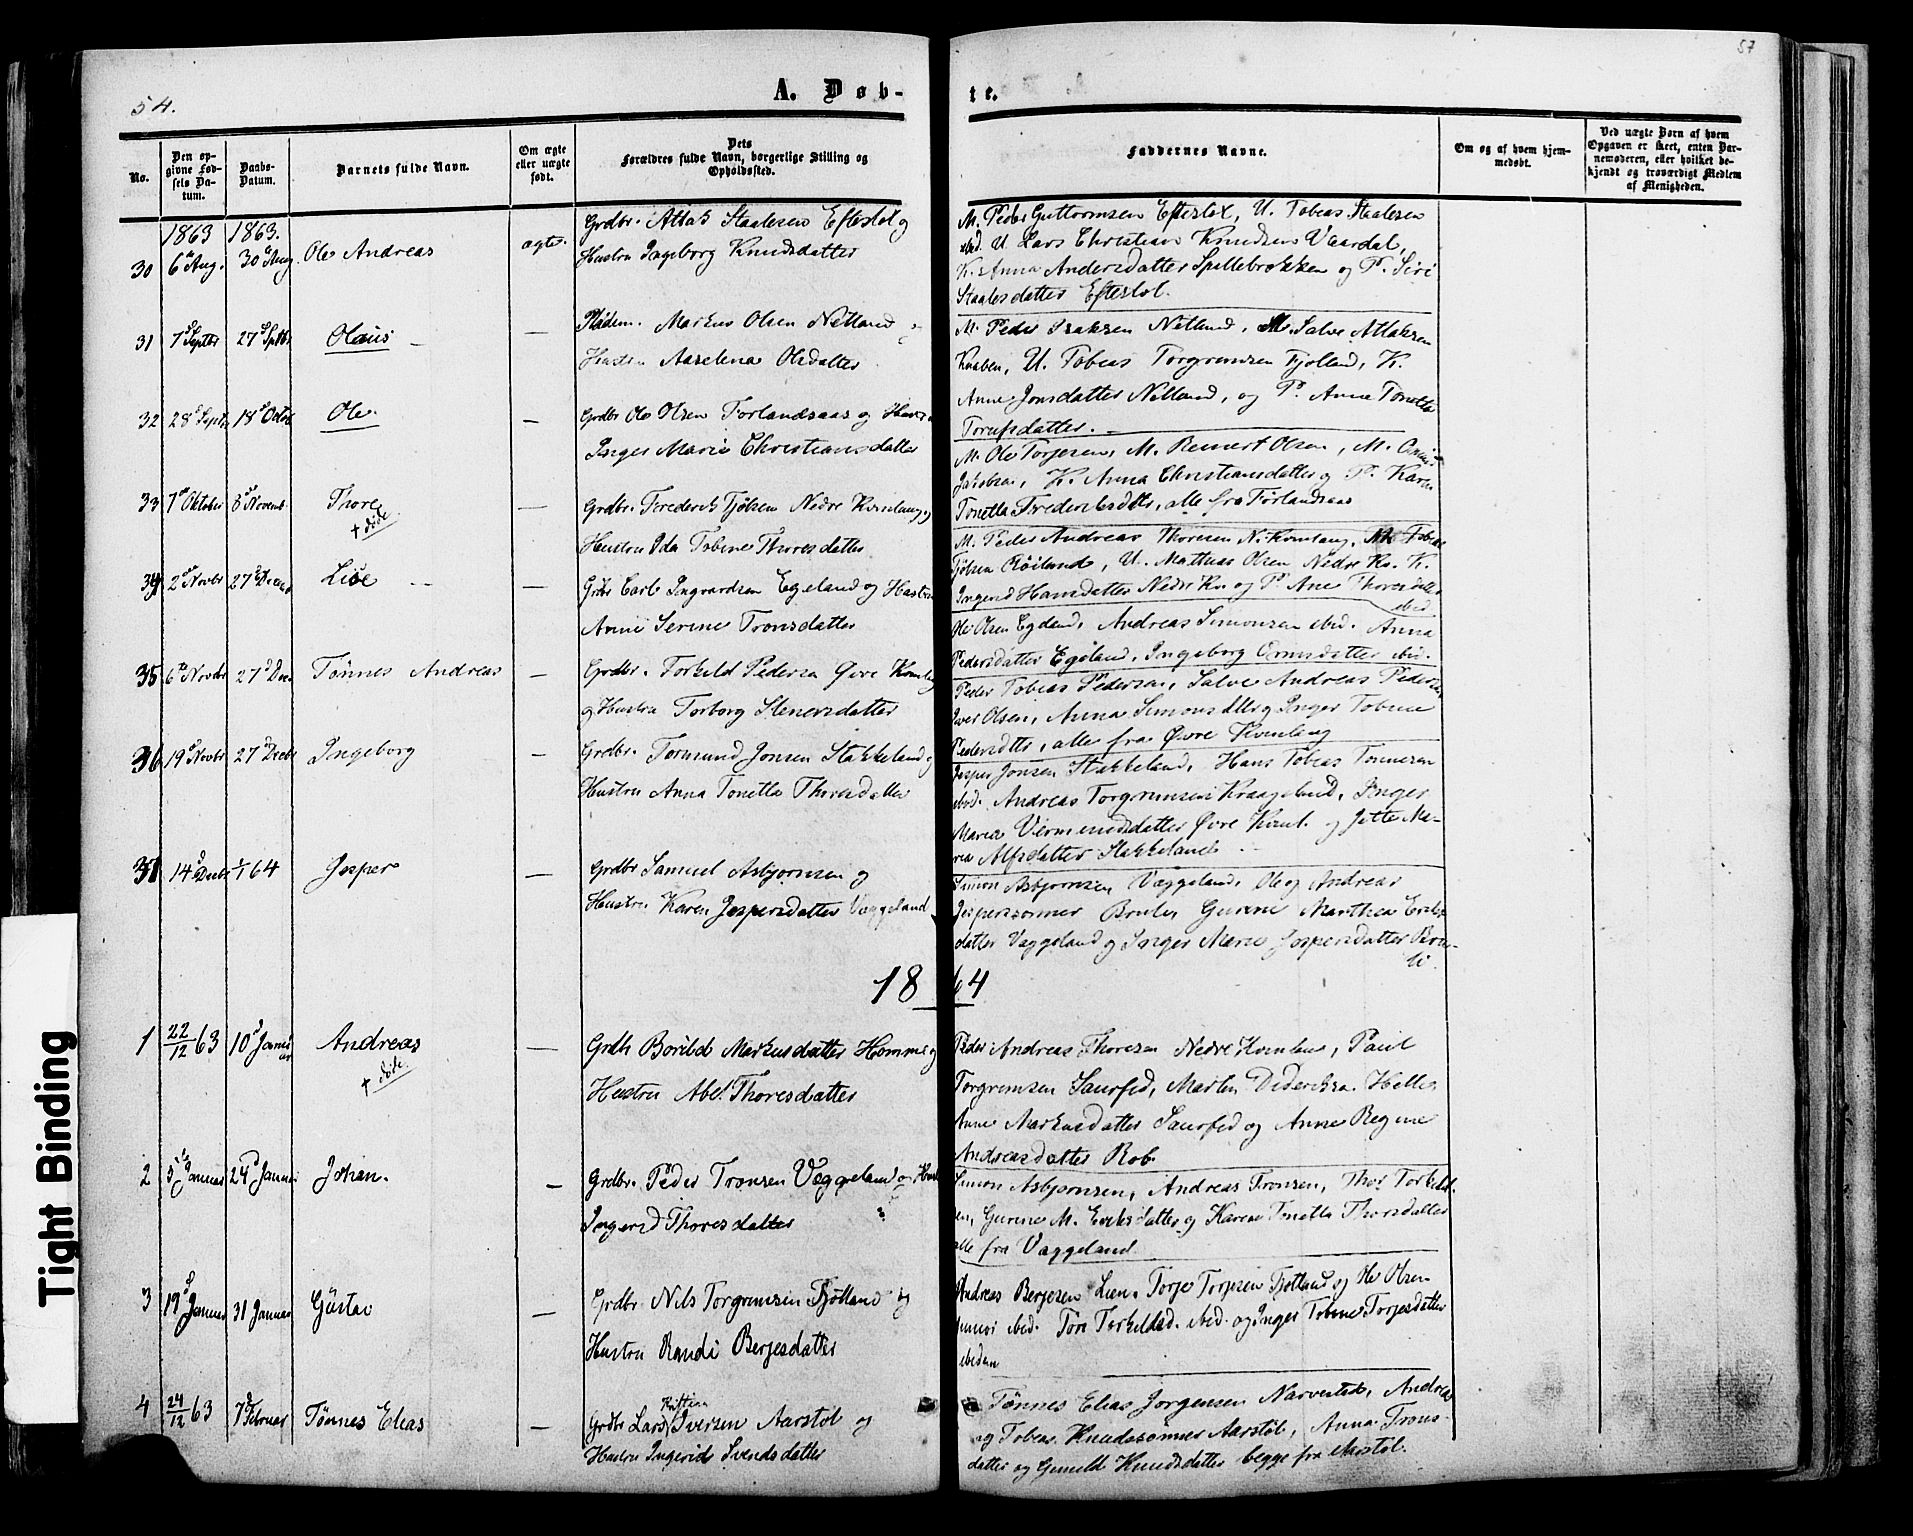 57
54.
A. Døb-
te.
No.
Den op-
givne Fød-
sels Da-
tum.
Daabs-
Datum.
Barnets fulde Navn.
Om ægte
eller uægte
født.
Dets
Forældres fulde Navn, borgerlige Stilling og
Opholdssted.
Faddernes Navne.
Om og af hvem hjem-
medøbt.
Ved uægte Børn af hvem
Opgaven er skeet, enten Bar-
nemoderen, eller hvilket be-
kjendt og troværdigt Medlem
af Menigheden.
1863 1863.
30 6 Aug. 30 Aug. Ole Andreas ægte. Grdbr. Atlak Staalesen Eftestøl og
Hustru Ingeborg Knudsdatter
M. Peder Guttormsen Eftestøl, U. Tobias Staalesen
ibid. U Lars Christian Knudsen Vaardal,
K. Anna Andersdatter Spillebrokken og P. Siri
Staalesdatter Eftestøl.
31 7 Septbr 27 Sptbr Olaus — Pladsm. Markus Olsen Netland
Hustru Aaselena Olsdatter
M. Peder Isaksen Netland, M. Salve Atlaksen
Knaben, U. Tobias Torgrimsen Fjotland, K.
Anne Jonsdatter Netland, og P. Anna Tonetta
datter.
32 28 Septbr 18 Octob Ole. — Grdbr Ole Olsen Forlandsaas og Hustru
Inger Marie Christiansdatter
M. Ole Torjesen, M. Reinert Olsen, M.
Jakobsen, K. Anna Christiansdatter og P. Karen
Tonetta Frederiksdtt, alle fra Forlandsaas
33 7 Oktober 8 Novemb. Thore — Grdbr. Frederik Tjølsen Nedre Kvinlaug og
† døde.
Hustru Ida Tobine Thoresdatter
M. Peder Andreas Thoresen N. Kvinlaug, M. Tobias
Tjølsen Røiland, U. Mathias Olsen Nedre Kv. K.
Ingerid Hansdatter Nedre Kv. og P. Ane Thoresdatter
ibid.
34 2 Novbr 27 Decemb Lise — Grdbr Carl Ingvardsen Egeland og Hustru
Anne Serine Tronsdatter
Ole Olsen Egeland, Andreas Simonsen ibid. Anna
Pedersdatter Egeland, Ingeborg Omundsdatter ibid.
35 6 Novbr 27 Dec Tønnes Andreas — Grdbr. Torkild Pedersen Øvre Kvinlog
og Hustru Torborg Stenersdatter
Peder Tobias Pedersen, Salve Andreas Pedersen
Iver Olsen, Anna Simonsdtr og Inger Tobine
Pedersdtr, alle fra Øvre Kvinlog
36 19 Novbr 27 Decb Ingeborg — Grdbr. Tormund Jonsen Stakkeland og
Hustru Anna Tonette Thoresdatter
Jesper Jonsen Stakkeland, Hans Tobias Tonnesen
ibid. Andreas Torgrimsen Kraageland, Inger
Maria Vermundsdatter Øvre Kvinl. og Jette Ma-
ria Alfsdatter Stakkeland
37 14 Decbr 1/1 64 Jesper — Grdbr Samuel Asbjørnsen og
Hustru Karen Jespersdatter Væggeland
Simon Asbjørnsen Væggeland, Ole og Andreas
Jesperssønner Bruli, Gurine Marthea Eriks-
datter Væggeland og Inger Marie Jespersdatter Bru-
li.
1864
1 22/12 63 10 Januar Andreas — Grdbr Borild Markusdatter Homme og
† døde.
Hustru Abel Thoresdatter
Peder Andreas Thoresen Nedre Kvinlaug, Paul
Torgrimsen Saurfed, Martin Dideriksen Helle,
Anne Markusdatter Saurfed og Anne Regine
Andreasdatter Rob.
2 5 Januar 24 Januar Johan. — Grdbr. Peder Tronsen Væggeland og Hust
Ingerid Thoresdatter
Simon Asbjørnsen, Andreas Tronsen, Thor Torkild-
sen, Gurine M. Eriksdatter og Karen Tonetta Thorsdatter
alle fra Væggeland
3 19 Januar 31 Januar Gustav — Grdbr. Nils Torgrimsen Fjotland og
Hustru Randi Berjesdatter
Andreas Berjesen Lien, Torje Torjesen Fjotland og Ole Olsen
junior ibid. Tone Torkildsd. ibid. og Inger Tobine Torjesdatter
ibidem
4 24/12 63 7 Februar Tønnes Elias — Grdbr Lars Kristian Iversen Aarstøl og
Hustru Ingerid Svendsdatter
Tønnes Elias Jørgensen Narvestad, Andreas
og Tobias Knudssønner Aarstøl, Anna Trons-
datter og Gunild Knudsdatter begge fra Aarstøl.
Tight Binding